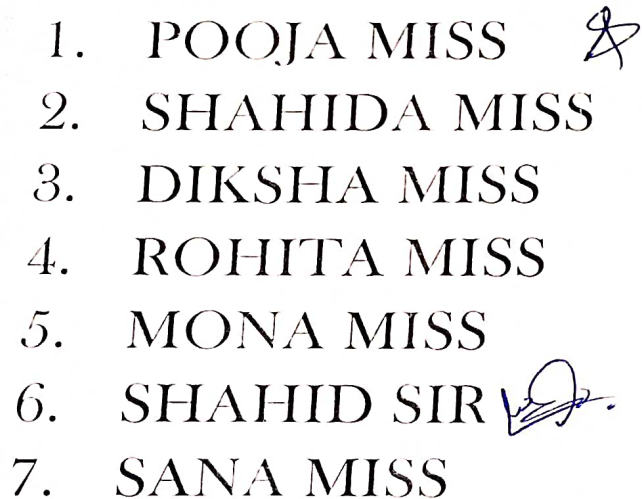 1. POOJA MISS
2. SHAHIDA MISS
3. DIKSHA MISS
4. ROHITA MISS
5. MONA MISS
6. SHAHID SIR
7. SANA MISS